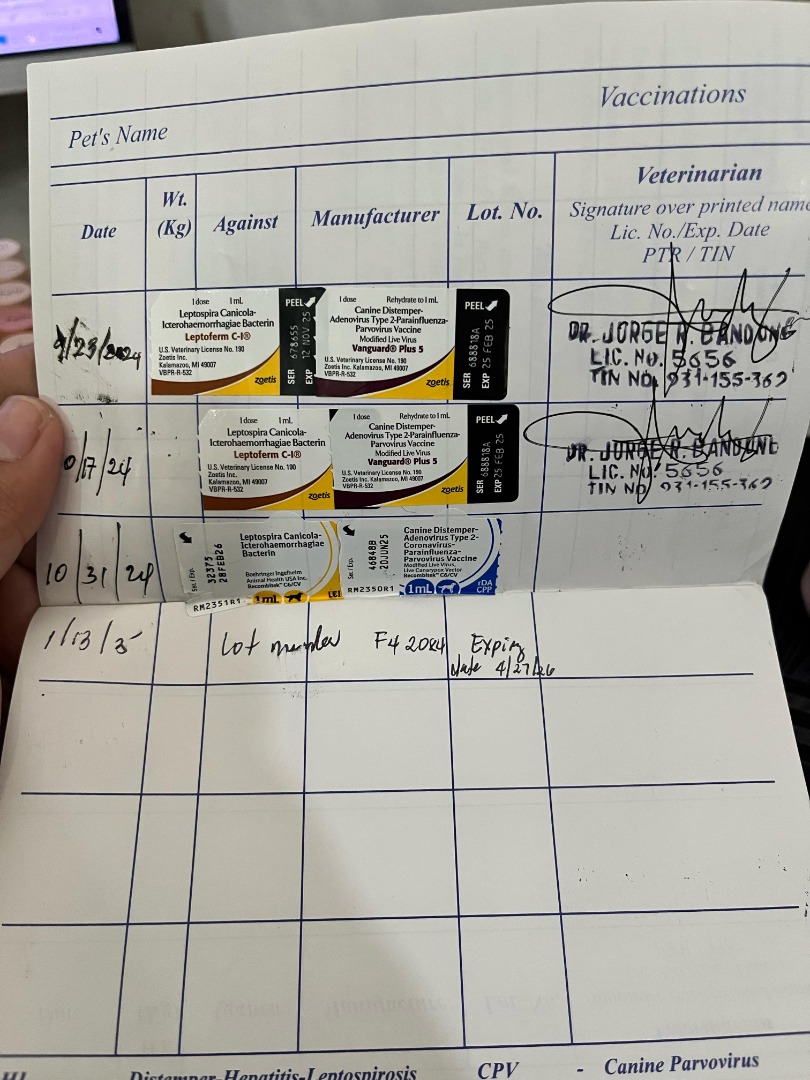 Vaccinations
Pet's Name
Date
Wt.
(Kg)
Against
Manufacturer
Lot. No.
Veterinarian
Signature over printed name
Lic. No./Exp. Date
PTR / TIN
9/23/2024
1 dose 1 mL
Leptospira Canicola-
Icterohaemorrhagiae Bacterin
Leptoferm C-I®
U.S. Veterinary License No. 190
Zoetis Inc.
Kalamazoo, MI 49007
VBPR-R-532
zoetis
PEEL
SER 678655
EXP 12 NOV 25
1 dose Rehydrate to 1 mL
Canine Distemper-
Adenovirus Type 2-Parainfluenza-
Parvovirus Vaccine
Modified Live Virus
Vanguard® Plus 5
U.S. Veterinary License No. 190
Zoetis Inc.
Kalamazoo, MI 49007
VBPR-R-532
zoetis
PEEL
SER 688818A
EXP 25 FEB 25
DR. JORGE R. BANDONG
LIC. NO. 5656
TIN NO. 931-155-362
0/7/24
1 dose 1 mL
Leptospira Canicola-
Icterohaemorrhagiae Bacterin
Leptoferm C-I®
U.S. Veterinary License No. 190
Zoetis Inc.
Kalamazoo, MI 49007
VBPR-R-532
zoetis
1 dose Rehydrate to 1 mL
Canine Distemper-
Adenovirus Type 2-Parainfluenza-
Parvovirus Vaccine
Modified Live Virus
Vanguard® Plus 5
U.S. Veterinary License No. 190
Zoetis Inc.
Kalamazoo, MI 49007
VBPR-R-532
zoetis
PEEL
SER 688818A
EXP 25 FEB 25
DR. JORGE R. BANDONG
LIC. NO. 5656
TIN NO 931-155-362
10/31/24
Ser. / Exp.
32375
28FEB26
RM2351R1
Leptospira Canicola-
Icterohaemorrhagiae
Bacterin
Boehringer Ingelheim
Animal Health USA Inc.
Recombitek™ C6/CV
1mL
Ser. / Exp.
46848B
20JUN25
RM2350R1
Canine Distemper-
Adenovirus Type 2-
Coronavirus-
Parainfluenza-
Parvovirus Vaccine
Modified Live Virus,
Live Canarypox Vector
Recombitek™ C6/CV
1mL
rDA
CPP
1/13/25
Lot number F42084 Expiry
Date 4/27/26
Distemper-Hepatitis-Leptospirosis
CPV - Canine Parvovirus